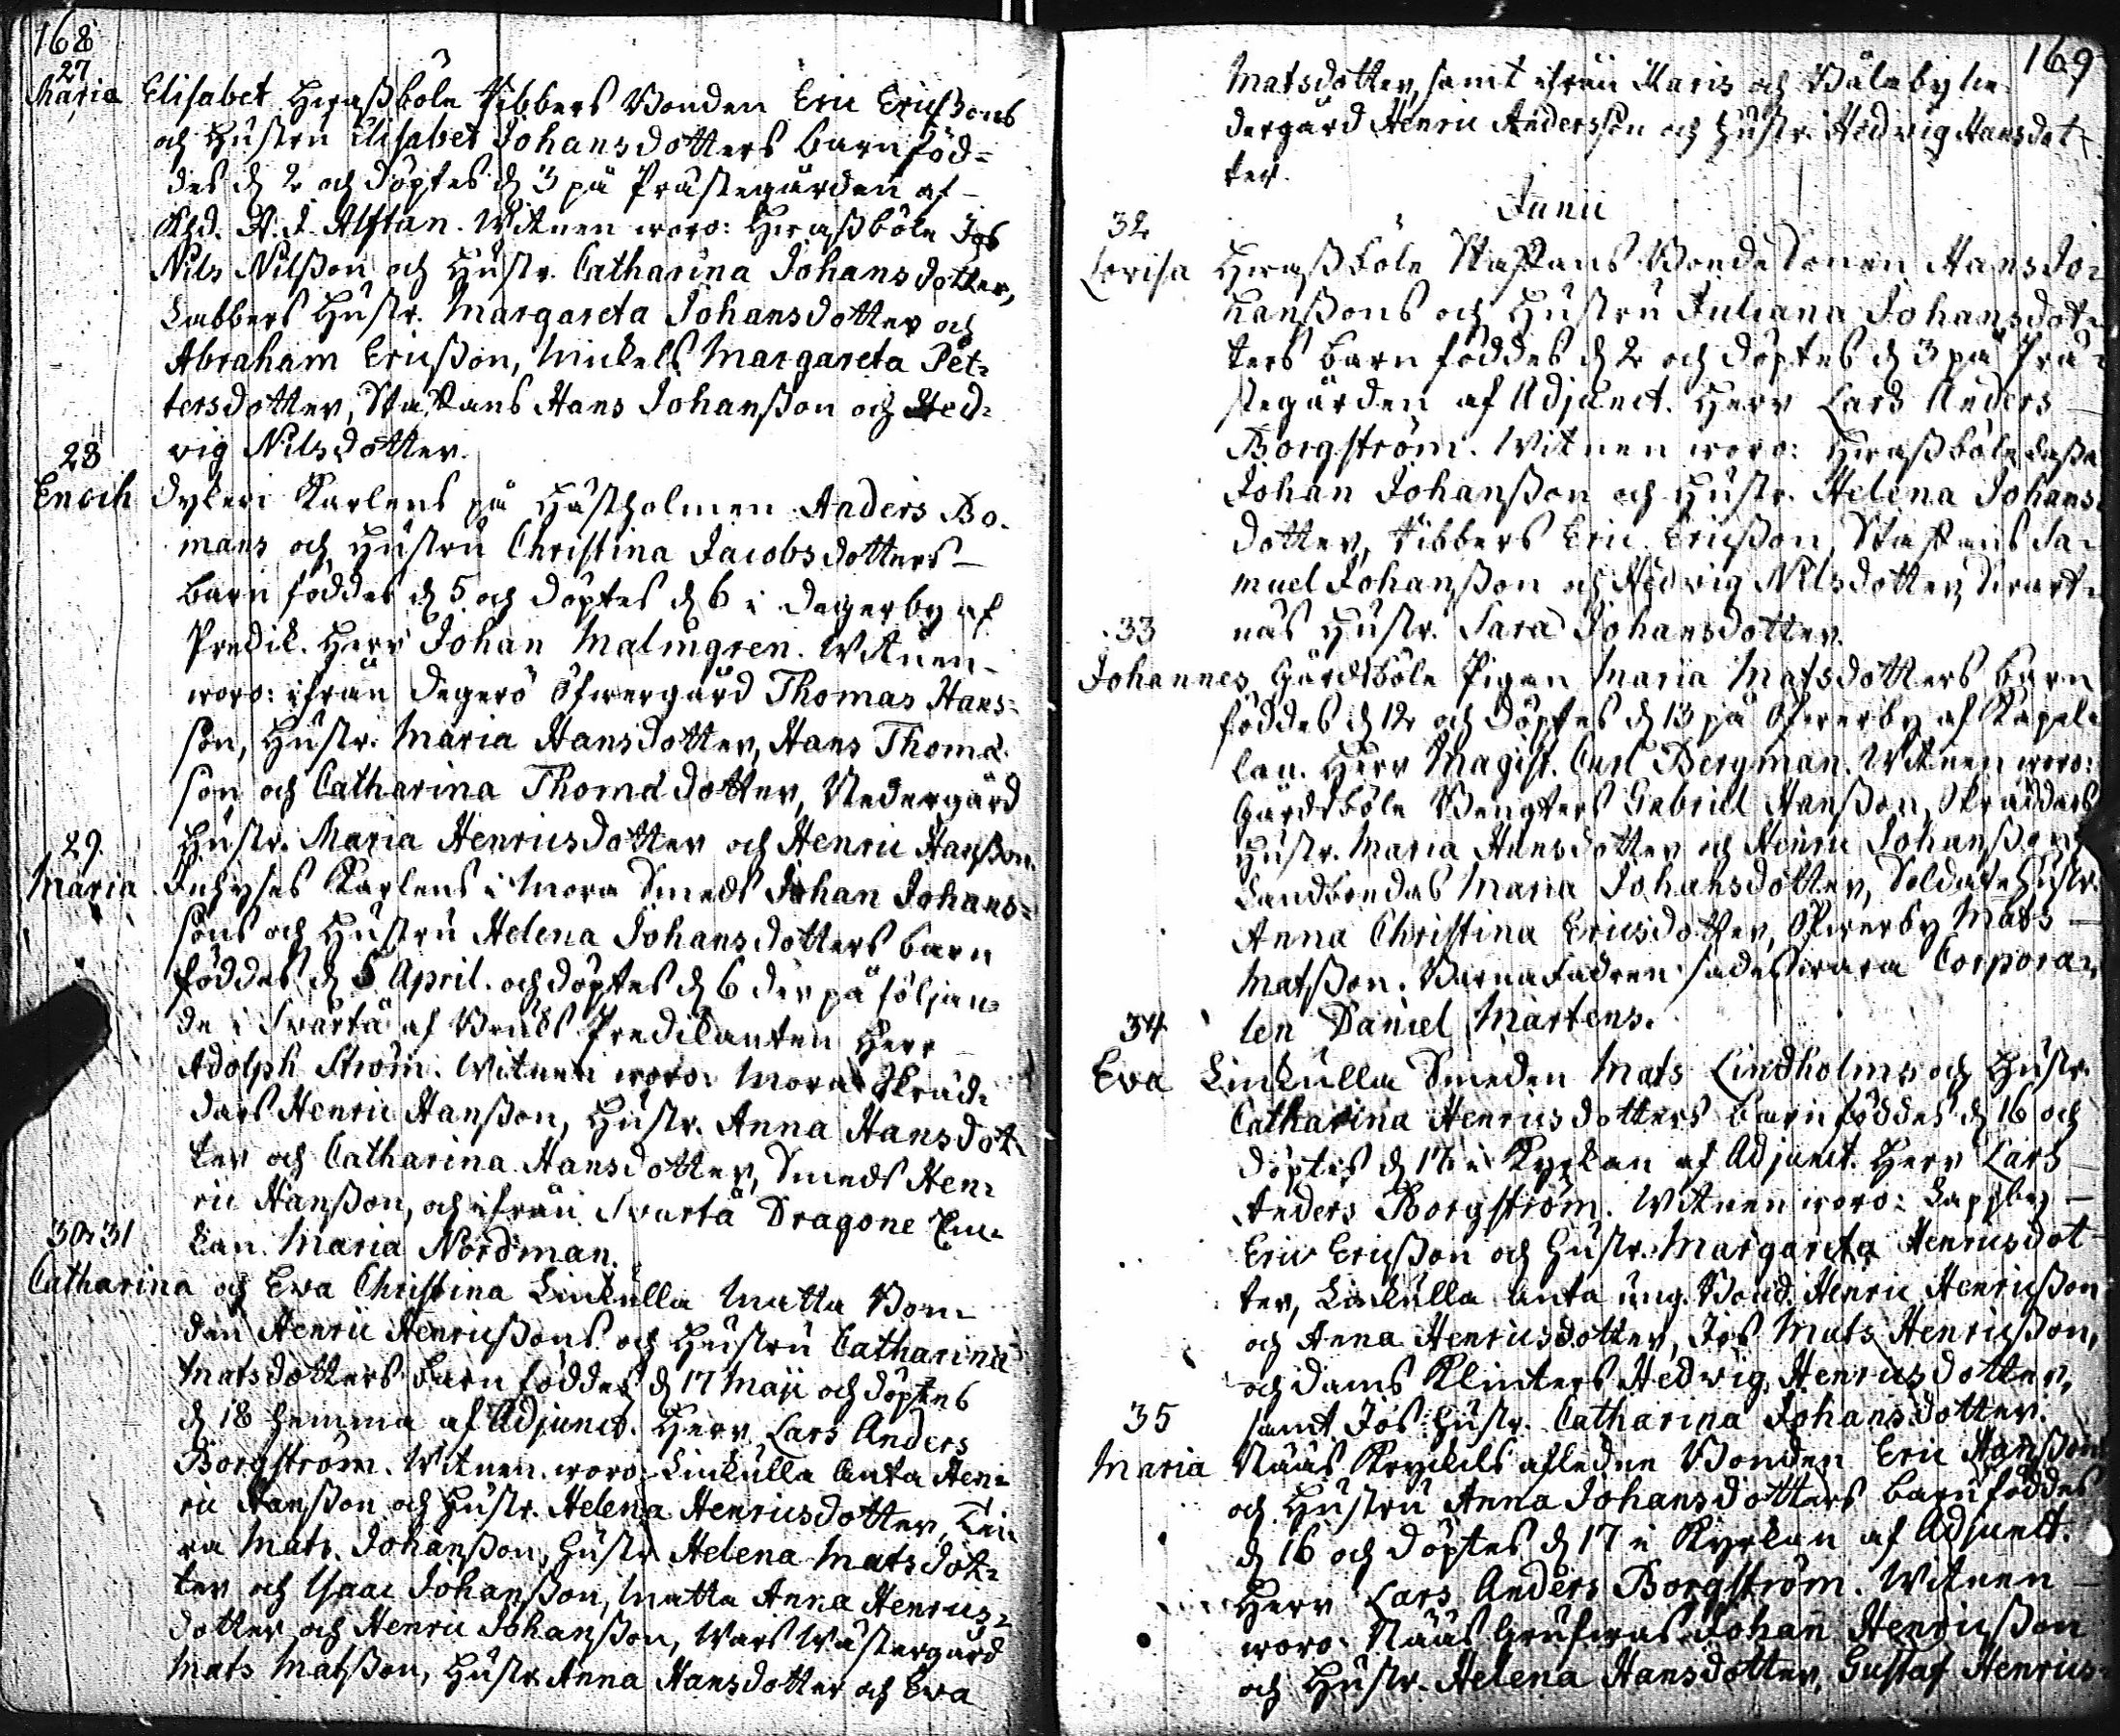 168
27
Maria Elisabet Heraßböle Tibbers Bonden Eric Ericßons
och Hustru Elisabet Johansdotters barn föd-
des d. 2 och döptes d. 3 på Prästegården af
A. J. Alftan. Witnen woro: Heraßböle Jos
Nils Nilßon och Hustr. Catharina Johansdotter,
Labbers Hustr. Margareta Johansdotter och
Abraham Ericßon, Mickels Margareta Pet-
tersdotter, Staffans Hans Johanßon och Hed-
28 wig Nilsdotter.
Enoch Dykeri Karlens på Hästholmen Anders Bo-
mans och Hustru Christina Jacobsdotters
barn föddes d. 5 och döptes d. 6 i Degerby af
Predik. Herr Johan Malmgren. Witnen
woro: ifrån Degerö Öfwergård Thomas Hans-
son, Hustr. Maria Hansdotter, Hans Thoma-
son och Catharina Thomædotter, Nedergård
29 Hustr. Maria Henricsdotter och Henric Hanßon.
Maria Inhyses Karlens i Mora Smeds Johan Johans-
sons och Hustru Helena Johansdotters barn
föddes d. 5 April. och döptes d. 6 der på följan-
de i Svartå af Bruks Predikanten Herr
Adolph Ström. Witnen woro: Mora Skräd-
dars Henric Hanßon, Hustr. Anna Hansdot-
ter och Catharina Hansdotter, Smeds Hen-
ric Hanßon, och ifrån Svartå Dragone En-
30. 31 kan Maria Nordman.
Catharina och Eva Christina Linkulla Matta Bon-
den Henric Henricßons och Hustru Catharina
Matsdotters barn föddes d. 17 Maji och döptes
d. 18 hemma af Adjunct. Herr Lars Anders
Borgström. Witnen woro: Linkulla Anta Hen-
ric Hanßon och Hustr. Helena Henricsdotter,
Mats Johanßon, Hustr. Helena Matsdot-
ter och Isaac Johanßon, Matta Anna Henrics-
dotter och Henric Johanßon, Wars Wästergård
Mats Matßon, Hustr. Anna Hansdotter och Eva
169
Matsdotter, samt ifrån Karis och Bålaby Ne-
dergård Henric Andersson och Hustr. Hedvig Hansdot-
ter.
Junii
32
Lovisa Heraßböle Staffans Bonde Sonen Hans Jo-
hanßons och Hustru Juliana Johansdot-
ters barn föddes d. 2 och döptes d. 3 på Prä-
stegården af Adjunct. Herr Lars Anders
Borgström. Witnen woro: Heraßböle
Johan Johanßon och Hustr. Helena Johans-
dotter, Tibbers Eric Ericßon, Staffans Sa-
muel Johanßon och Hedvig Nilsdotter, Svart-
33 näs Hustr. Sara Johansdotter.
Johannes Gårdsböle Pigan Maria Matsdotters barn
föddes d. 12 och döptes d. 13 på Öfwerby af Kapel-
lan. Herr Magist. Carl Bergman. Witnen woro:
Gårdsböle Bengters Gabriel Hanßon, Skräddars
Hustr. Maria Hansdotter och Henric Johanßon,
Landbondas Maria Johansdotter, Soldate Hustr.
Anna Christina Ericsdotter, Öfwerby Mats
Matßon. Barnafadren sades wara Corpora-
34 len Daniel Mårtens.
Eva Linkulla Smeden Mats Lindholms och Hustr.
Catharina Henricsdotters barn föddes d. 16 och
döptes d. 17 i Kyrkan af Adjunct. Herr Lars
Anders Borgström. Witnen woro: Lappby
Eric Ericßon och Hustr. Margareta Henricsdot-
ter, Linkulla Anta ung. Bond. Henric Henricßon
och Anna Henricsdotter, Jos Mats Henricßon,
och Klinkers Hedvig Henricsdotter,
35 samt Jos Hustr. Catharina Johansdotter.
Maria Näas afledne Bonden Eric Hanßons
och Hustru Anna Johansdotters barn föddes
d. 16 och döptes d. 17 i Kyrkan af Adjunct.
Herr Lars Anders Borgström. Witnen
woro: Näas Johan Henricßon
och Hustr. Helena Hansdotter, Gustaf Henrics-